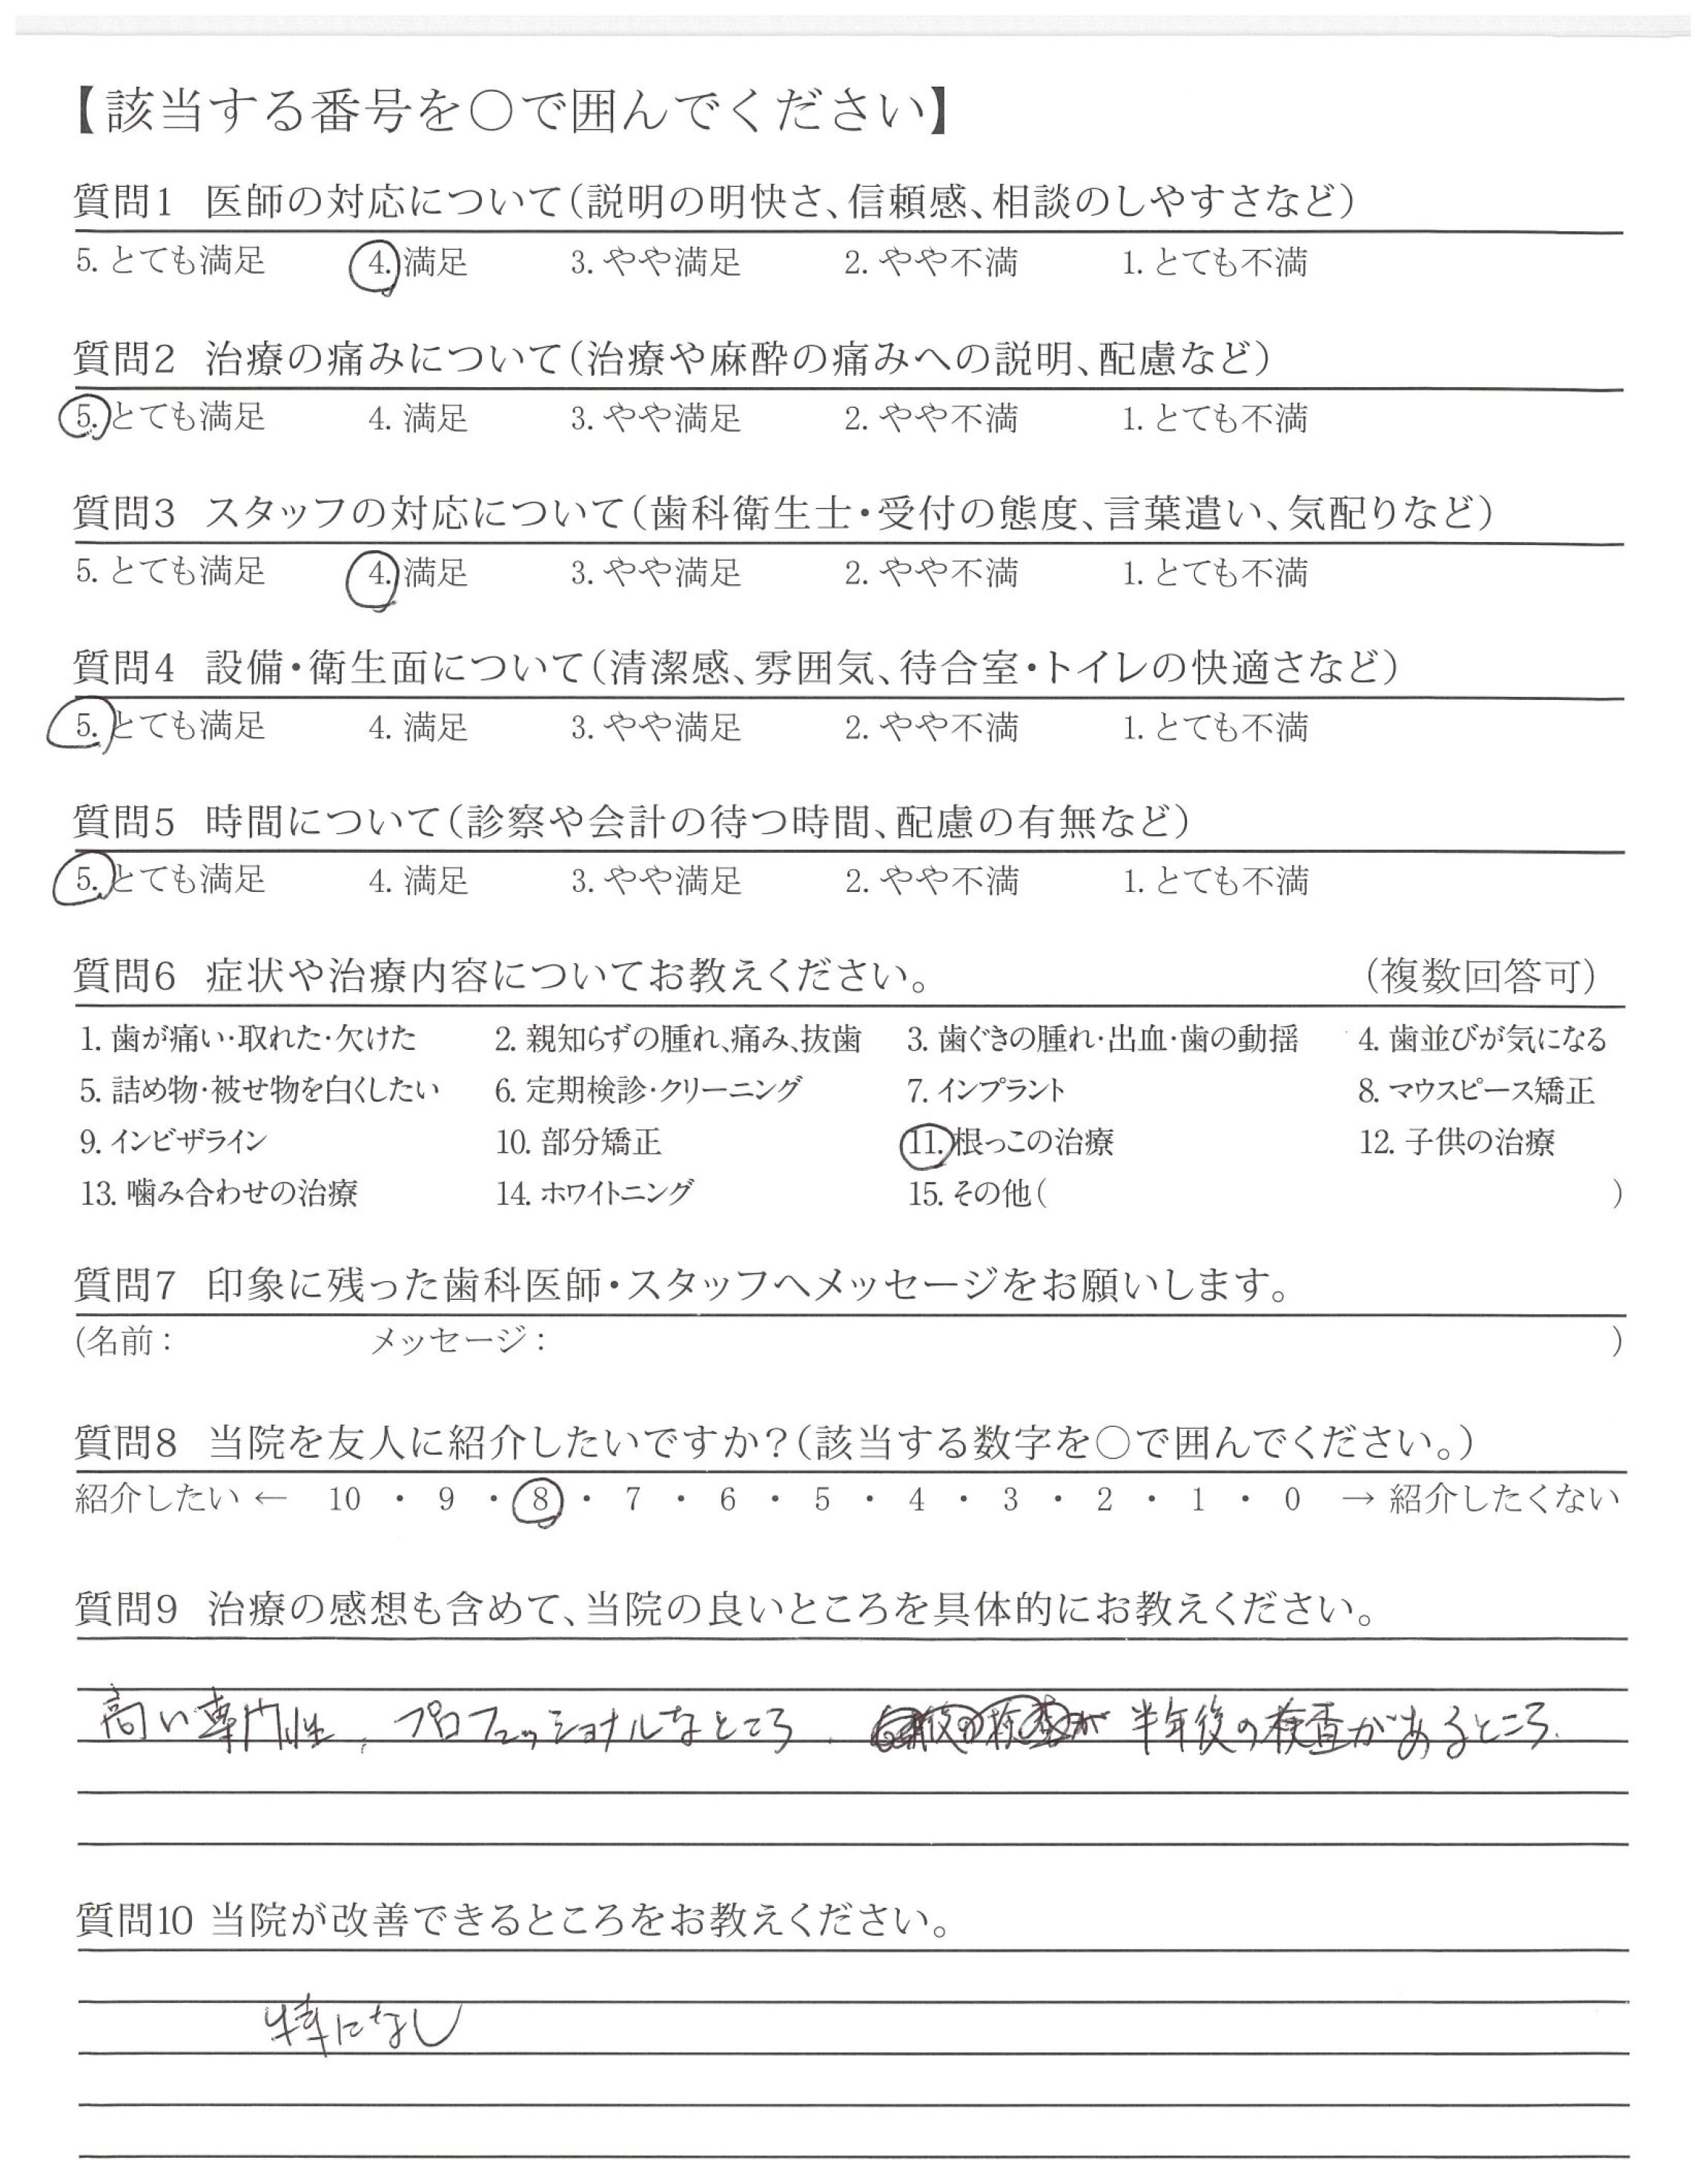 【該当する番号を〇で囲んでください】
質問1 医師の対応について(説明の明快さ、信頼感、相談のしやすさなど)
5. とても満足 4. 満足 3. やや満足 2. やや不満 1. とても不満
質問2 治療の痛みについて(治療や麻酔の痛みへの説明、配慮など)
5. とても満足 4. 満足 3. やや満足 2. やや不満 1. とても不満
質問3 スタッフの対応について(歯科衛生士・受付の態度、言葉遣い、気配りなど)
5. とても満足 4. 満足 3. やや満足 2. やや不満 1. とても不満
質問4 設備・衛生面について(清潔感、雰囲気、待合室・トイレの快適さなど)
5. とても満足 4. 満足 3. やや満足 2. やや不満 1. とても不満
質問5 時間について(診察や会計の待つ時間、配慮の有無など)
5. とても満足 4. 満足 3. やや満足 2. やや不満 1. とても不満
質問6 症状や治療内容についてお教えください。 (複数回答可)
1. 歯が痛い・取れた・欠けた 2. 親知らずの腫れ、痛み、抜歯 3. 歯ぐきの腫れ・出血・歯の動揺 4. 歯並びが気になる
5. 詰め物・被せ物を白くしたい 6. 定期検診・クリーニング 7. インプラント 8. マウスピース矯正
9. インビザライン 10. 部分矯正 11. 根っこの治療 12. 子供の治療
13. 噛み合わせの治療 14. ホワイトニング 15. その他( )
質問7 印象に残った歯科医師・スタッフへメッセージをお願いします。
(名前： メッセージ： )
質問8 当院を友人に紹介したいですか？(該当する数字を〇で囲んでください。)
紹介したい ← 10 ・ 9 ・ 8 ・ 7 ・ 6 ・ 5 ・ 4 ・ 3 ・ 2 ・ 1 ・ 0 → 紹介したくない
質問9 治療の感想も含めて、当院の良いところを具体的にお教えください。
高い専門性、プロフェッショナルなところ、半年後の検査があるところ.
質問10 当院が改善できるところをお教えください。
特になし